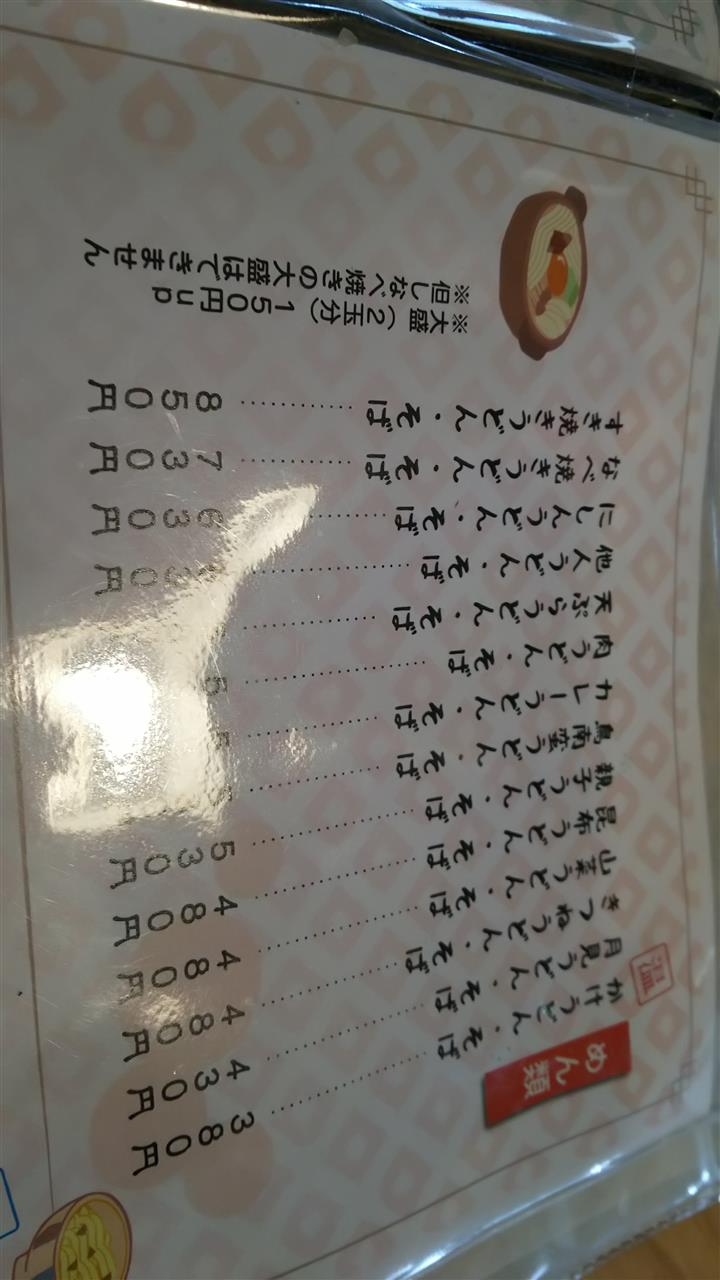 めん類
温
かけうどん・そば …………… 380円
月見うどん・そば …………… 430円
きつねうどん・そば …………… 480円
山菜うどん・そば …………… 480円
昆布うどん・そば …………… 480円
親子うどん・そば …………… 530円
鳥南蛮うどん・そば ……………
カレーうどん・そば ……………
肉うどん・そば ……………
天ぷらうどん・そば ……………
他人うどん・そば ……………
にしんうどん・そば …………… 630円
なべ焼きうどん・そば ………… 730円
すき焼きうどん・そば ………… 850円
※大盛（2玉分）150円up
※但しなべ焼きの大盛はできません